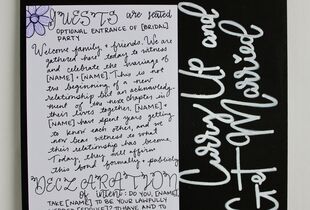 GUESTS are seated
OPTIONAL ENTRANCE OF [BRIDAL]
PARTY
Welcome family + friends. We are
gathered here today to witness
and celebrate the marriage of
[NAME] + [NAME]. This is not
the beginning of a new
relationship but an acknowledg-
ment of the next chapter in
their lives together. [NAME]
+ [NAME] have spent years getting
to know each other, and we
now bear witness to what
their relationship has become.
Today, they will affirm
this bond formally + publicly
DECLARATION
of intent: DO YOU, [NAME]
TAKE [NAME] TO BE YOUR LAWFULLY
TO HAVE AND TO
Curry Up and
Get Married